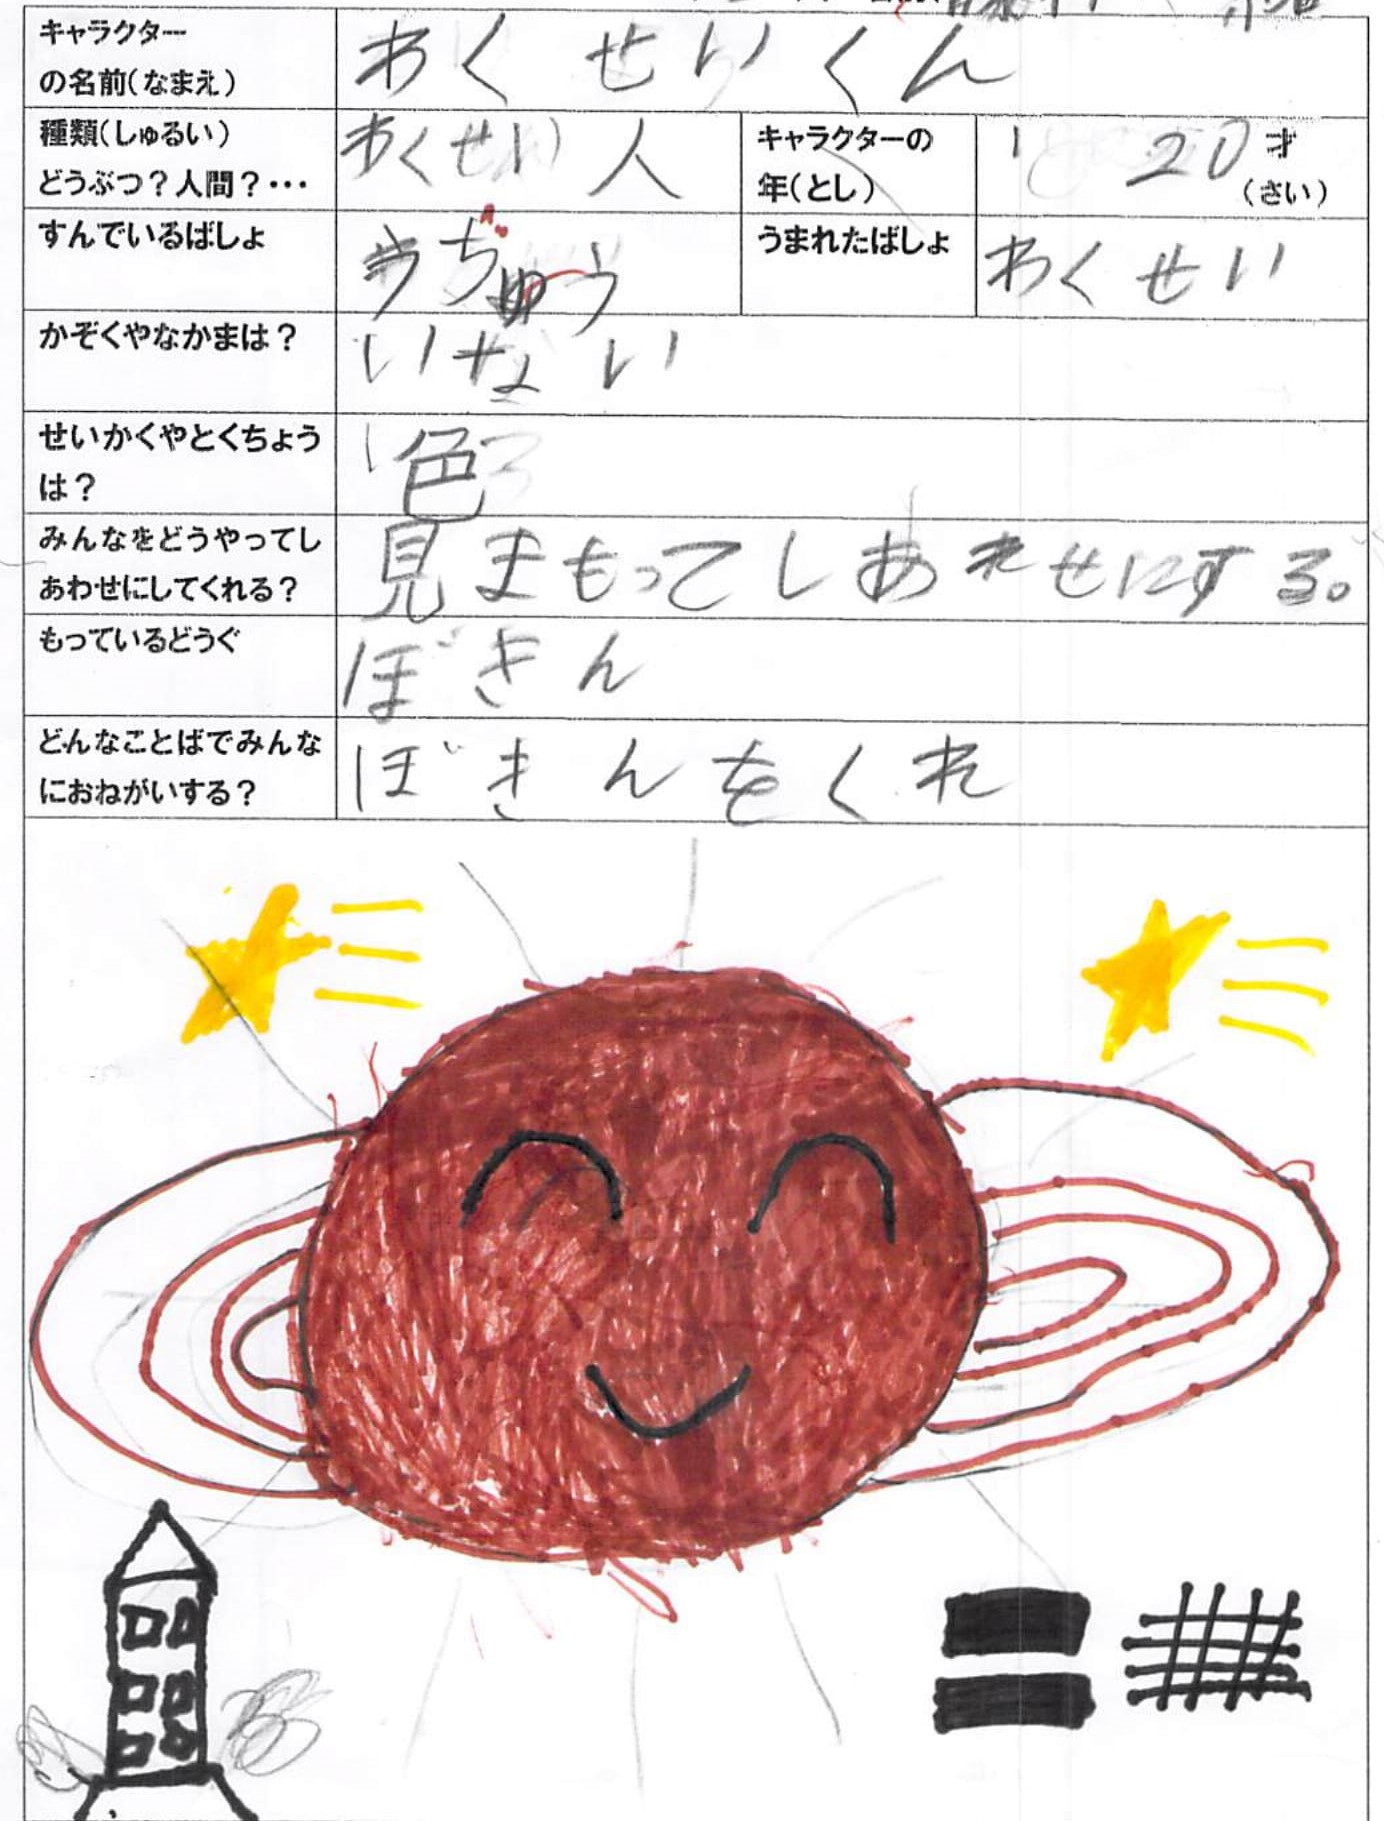 キャラクター
の名前(なまえ)
わくせいくん
種類(しゅるい)
どうぶつ?人間?・・・
わくせい人
キャラクターの
年(とし)
20才
(さい)
すんでいるばしょ
うちゅう
うまれたばしょ
わくせい
かぞくやなかまは?
いない
せいかくやとくちょう
は?
色
みんなをどうやってし
あわせにしてくれる?
見まもってしあわせにする。
もっているどうぐ
ぼきん
どんなことばでみんな
におねがいする?
ぼきんをくれ